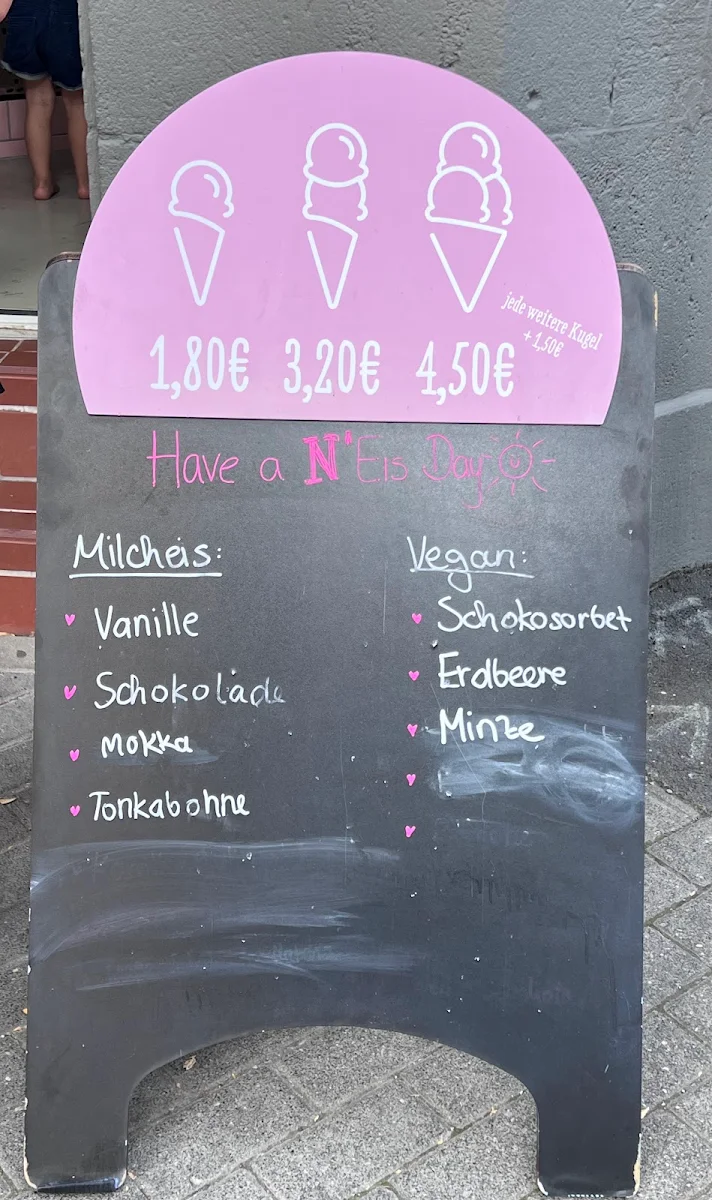 1,80€ 3,20€ 4,50€
jede weitere Kugel
+ 1,50€
Have a N'Eis Day
Milcheis:
Vanille
Schokolade
Mokka
Tonkabohne
Vegan:
Schokosorbet
Erdbeere
Minze